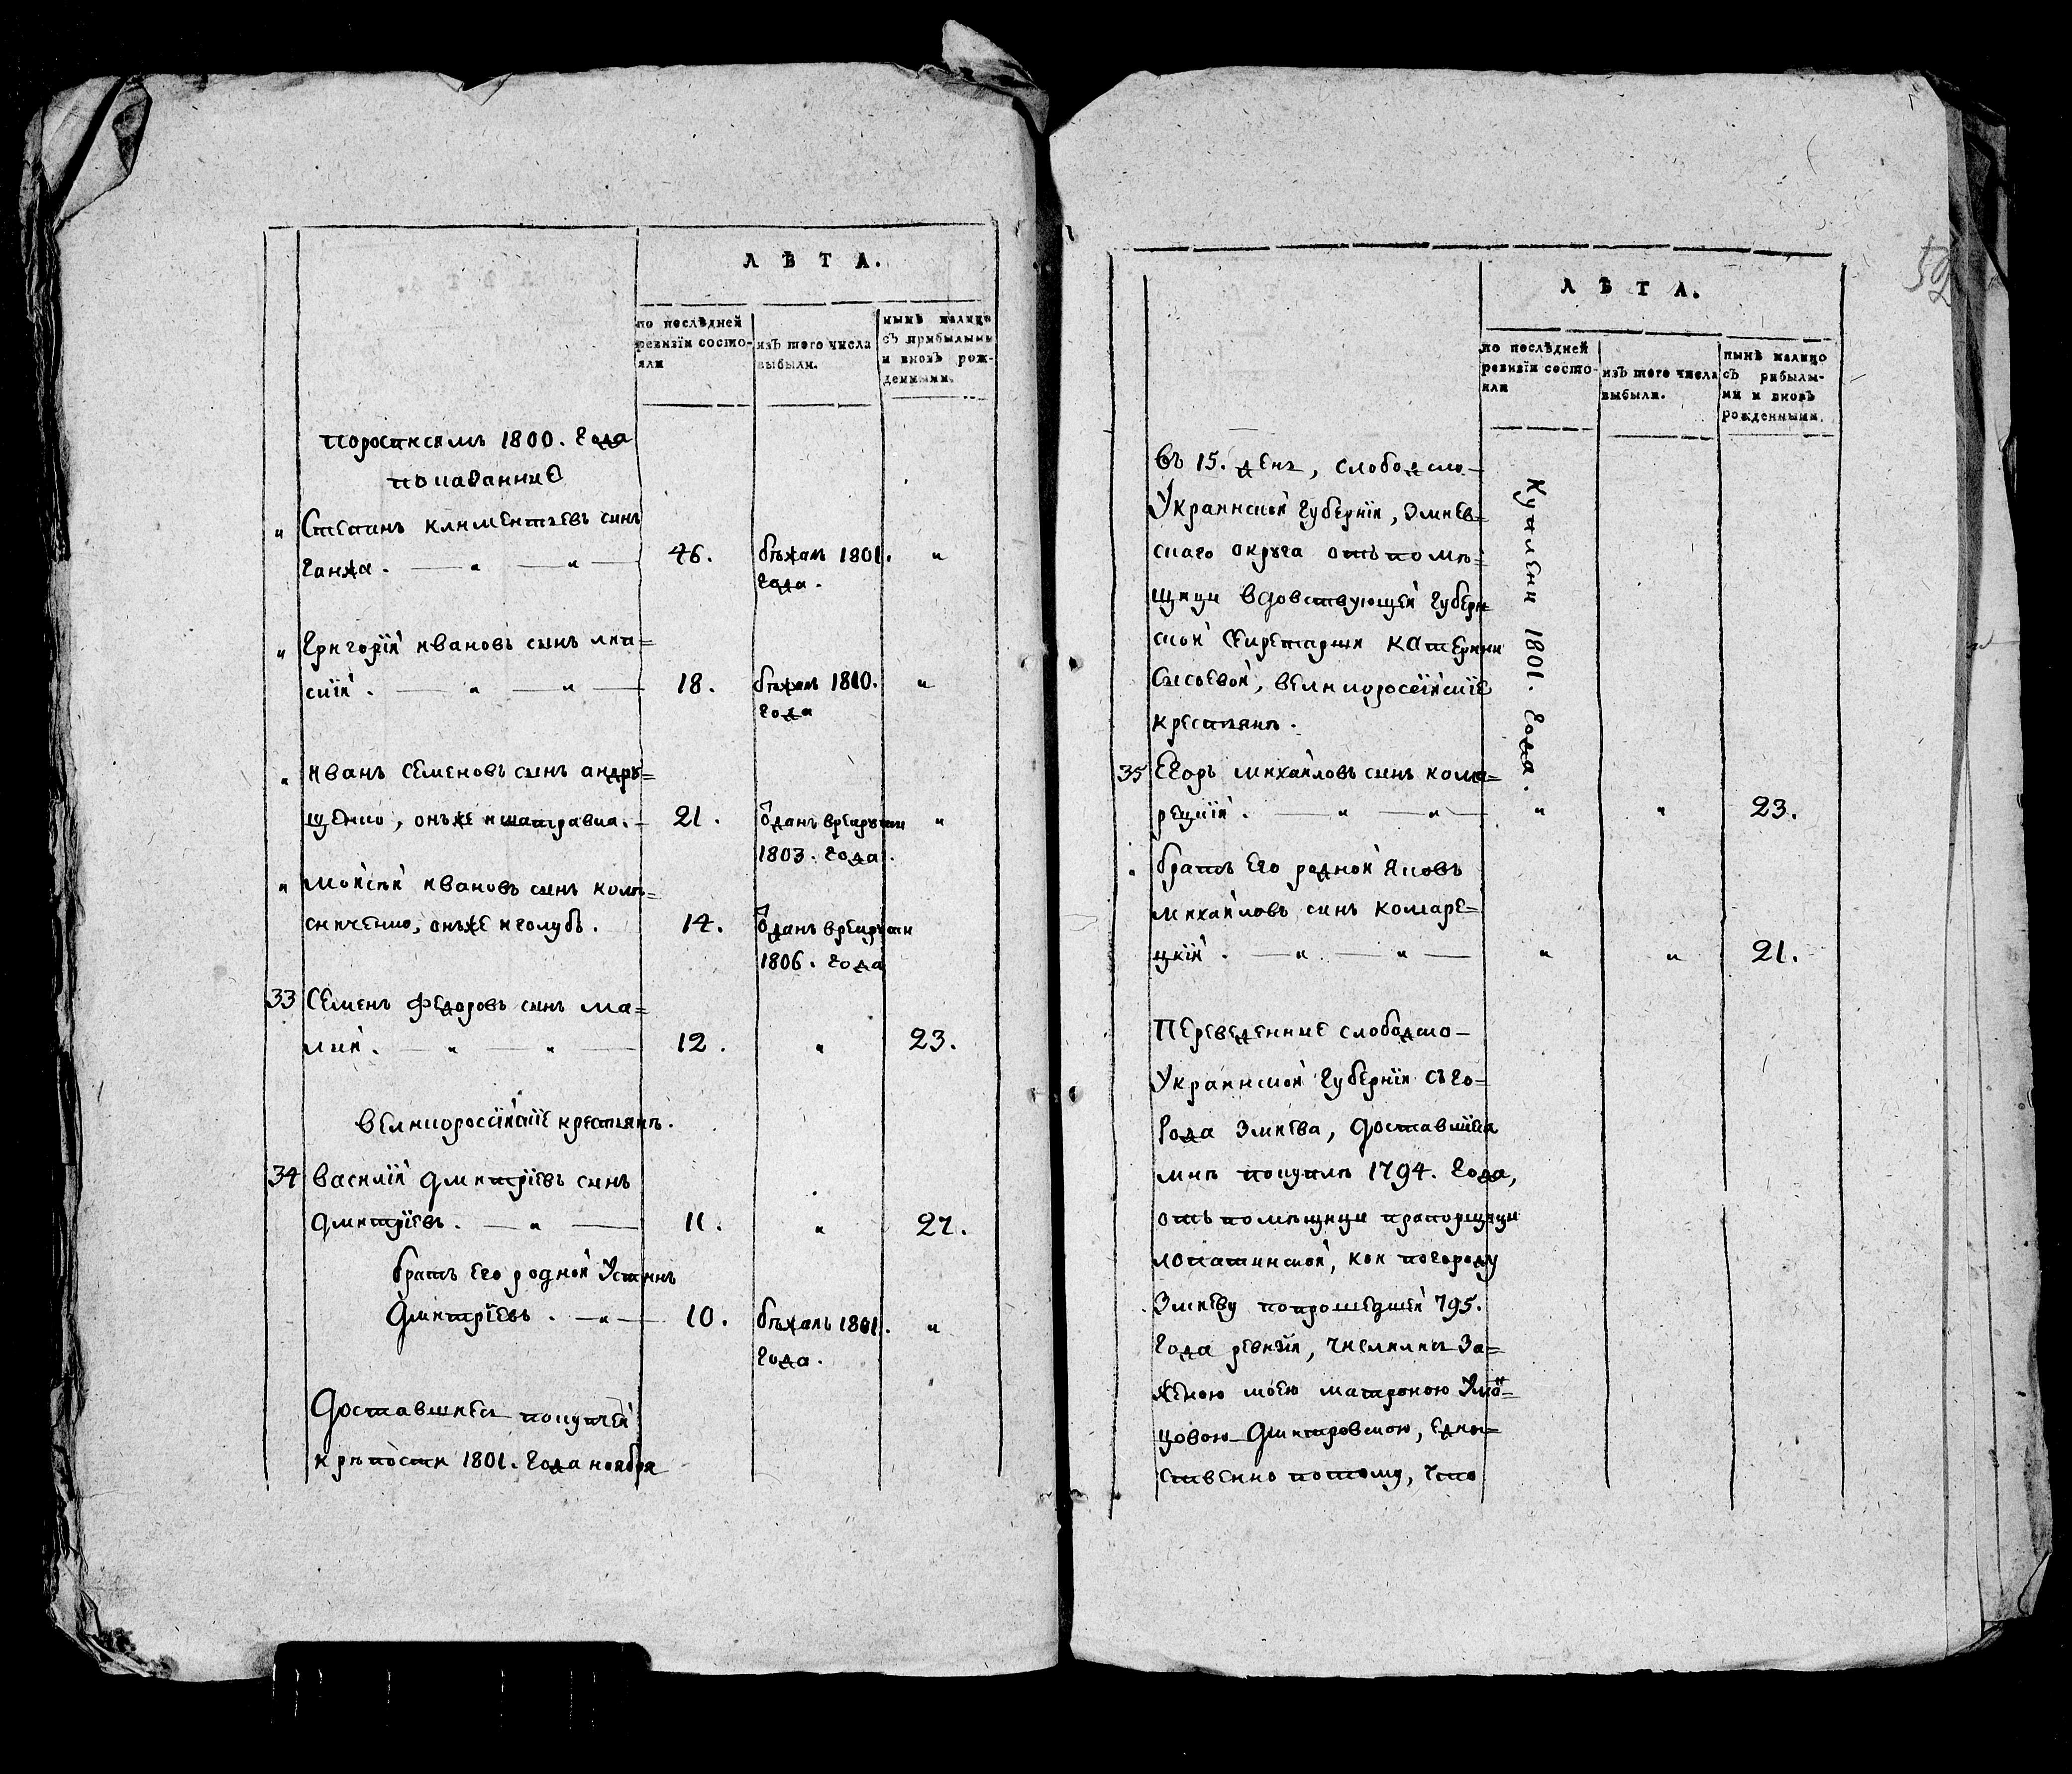 ЛѢТА.
по послѣдней ревизїи состо-
яли
изъ того числа
выбыли.
нынѣ налицо
съ прибылыми
и вновь рож-
денными.
поросписямъ 1800. года
показанные
" Степанъ климентьевъ сынъ
ганжа. — " — " — 46. бѣжал 1801. "
года.
" Григорїй ивановъ сынъ лип-
скїй. — " — " — 18. бѣжал 1810. "
года
" Иванъ Семеновъ сынъ андру=
щенко, онъже ишатравка. — 21. ѿданъ врекруты "
1803. года.
" Мойсѣй ивановъ сынъ коле=
сниченко, онъже иголубъ. 14. ѿданъ врекруты
1806. года
33 Семенъ Федоровъ сынъ ма=
лый. — " — " — 12. " 23.
великороссїйскїе крестьянѣ.
34 Василїй дмитрїевъ сынъ
дмитрїевъ. — " — 11. " 22.
братъ его родной Устинъ
дмитрїевъ. — " — 10. бѣжалъ 1801. "
года.
Доставшиесь покупчей
крѣпости 1801. года ноября
52
ЛѢТА.
по послѣдней
ревизїи состо-
яли
изъ того числа
выбыли.
нынѣ налицо
съ рибылы-
ми и вновь
рожденными.
Въ 15. день, слободско-
Украинской губернїи, змиев=
скаго округа отъ помѣ=
щицы вдовствующей губерн
ской секретарши катерины
Сысоевой, великоросейскїе
крестьянѣ.
Куплены 1801. года.
35 Егоръ михайловъ сынъ кома=
рецкїй. — " — " — " " 23.
" братъ его родной Яковъ
михайловъ сынъ комаре=
цкїй. — " — " — " " 21.
Переведенные слободско-
Украинской губернїи съ го=
рода змиева, доставшїеся
мнѣ покупкѣ 1794. года,
отъ помѣщицы прапорщицы
лопатинской, кои погороду
Змиеву попрошедшей 795.
года ревизїи, числились за=
женою моею матроною Уман=
цовою-дмитровскою, един=
ственно потому, что